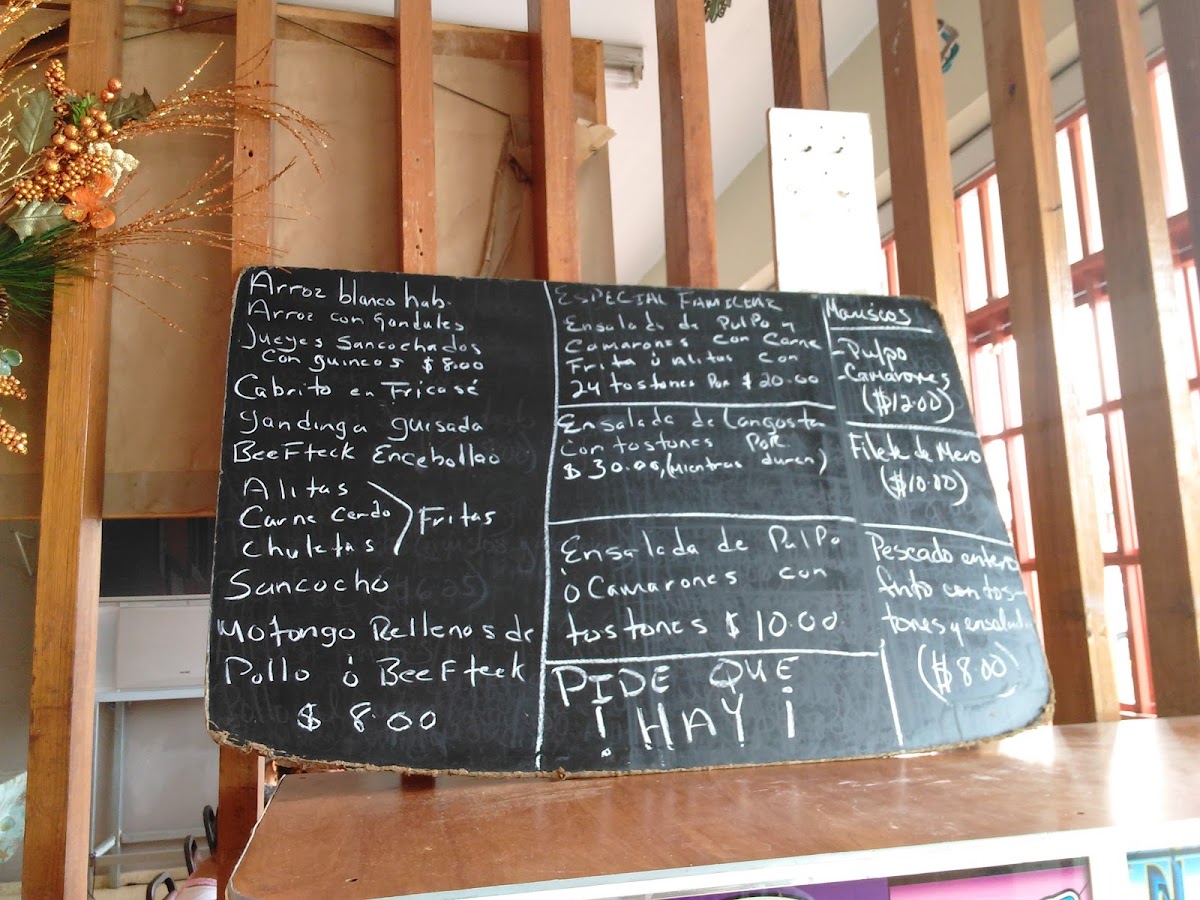 Arroz blanco hab.
Arroz con Gandules
Jueyes Sancochados
con guineos $8.00
Cabrito en Fricasé
Gandinga guisada
BeeFteck Encebollao
Alitas
Carne Cerdo
Chuletas
Fritas
Sancocho
Mofongo Rellenos de
Pollo ó BeeFteck
$ 8.00
ESPECIAL FAMILIAR
Ensalada de Pulpo y
Camarones con Carne
Frita ó Alitas con
24 tostones Por $20.00
Ensalada de Langosta
Con tostones Por
$30.00, (Mientras duren)
Ensalada de Pulpo
ó Camarones con
tostones $10.00
PIDE QUE
¡HAY!
Mariscos
-Pulpo
-Camarones
($12.00)
Filete de Mero
($10.00)
Pescado entero
frito con tos-
tones y ensalada
($8.00)